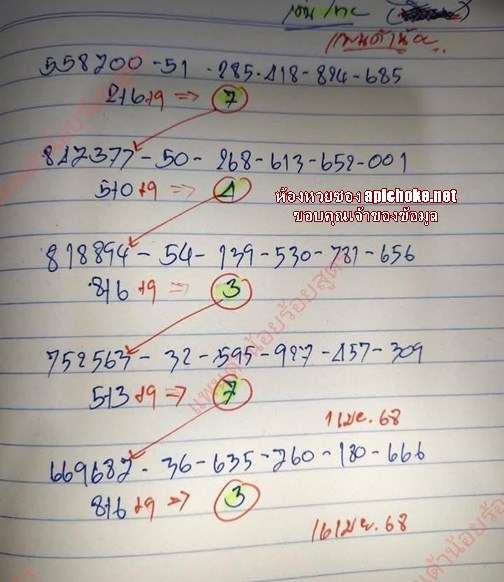 แพนด้าน้อย
558700-51-285-418-824-685
2+6+9 => 7
847377-50-268-613-652-001
5+0+9 => 4
ห้องหวยซอง apichoke.net
ขอบคุณเจ้าของข้อมูล
818894-54-139-530-781-656
8+6+9 => 3
752563-32-595-927-457-309
5+3+9 => 7
1 เมย. 68
669687-36-635-760-180-666
8+6+9 => 3
16 เมย. 68